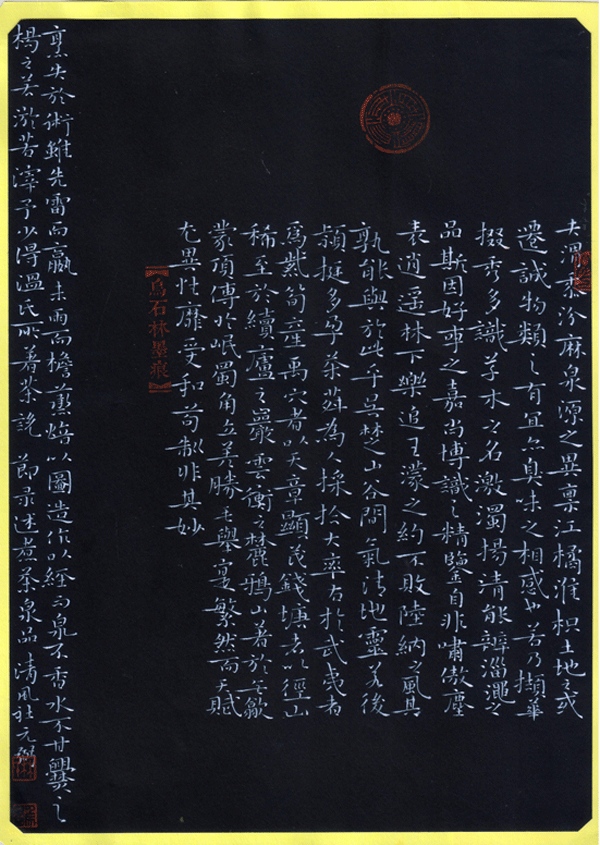 夫渭黍汾麻泉源之異禀江橘淮枳土地之或
遷誠物類之有宜亦臭味之相感也若乃擷華
掇秀多識草木之名激濁揚清能辨淄澠之
品斯固好事之嘉尚博識之精鑒自非嘯傲塵
表逍遥林下樂追王濛之約不敗陸納之風其
孰能與於此乎吴楚山谷間氣清地靈
穎挺多孕茶荈為人採拾大率右於武夷者
為紫筍產禹穴者以天章顯茂錢塘者以徑山
稀至於續廬之巖雲衡之麓鴉山著於無歙
蒙頂傳於岷蜀角立差勝毛舉實繁然而天賦
尤異性靡受和苟制非其妙
烏石林墨痕
烹失於術雖先雷而贏未雨而檐蒸焙以圖造作以經而泉不香水不甘爨之
揚之若淤若滓予少得溫氏所著茶説 節录述煮茶泉品 清風社元